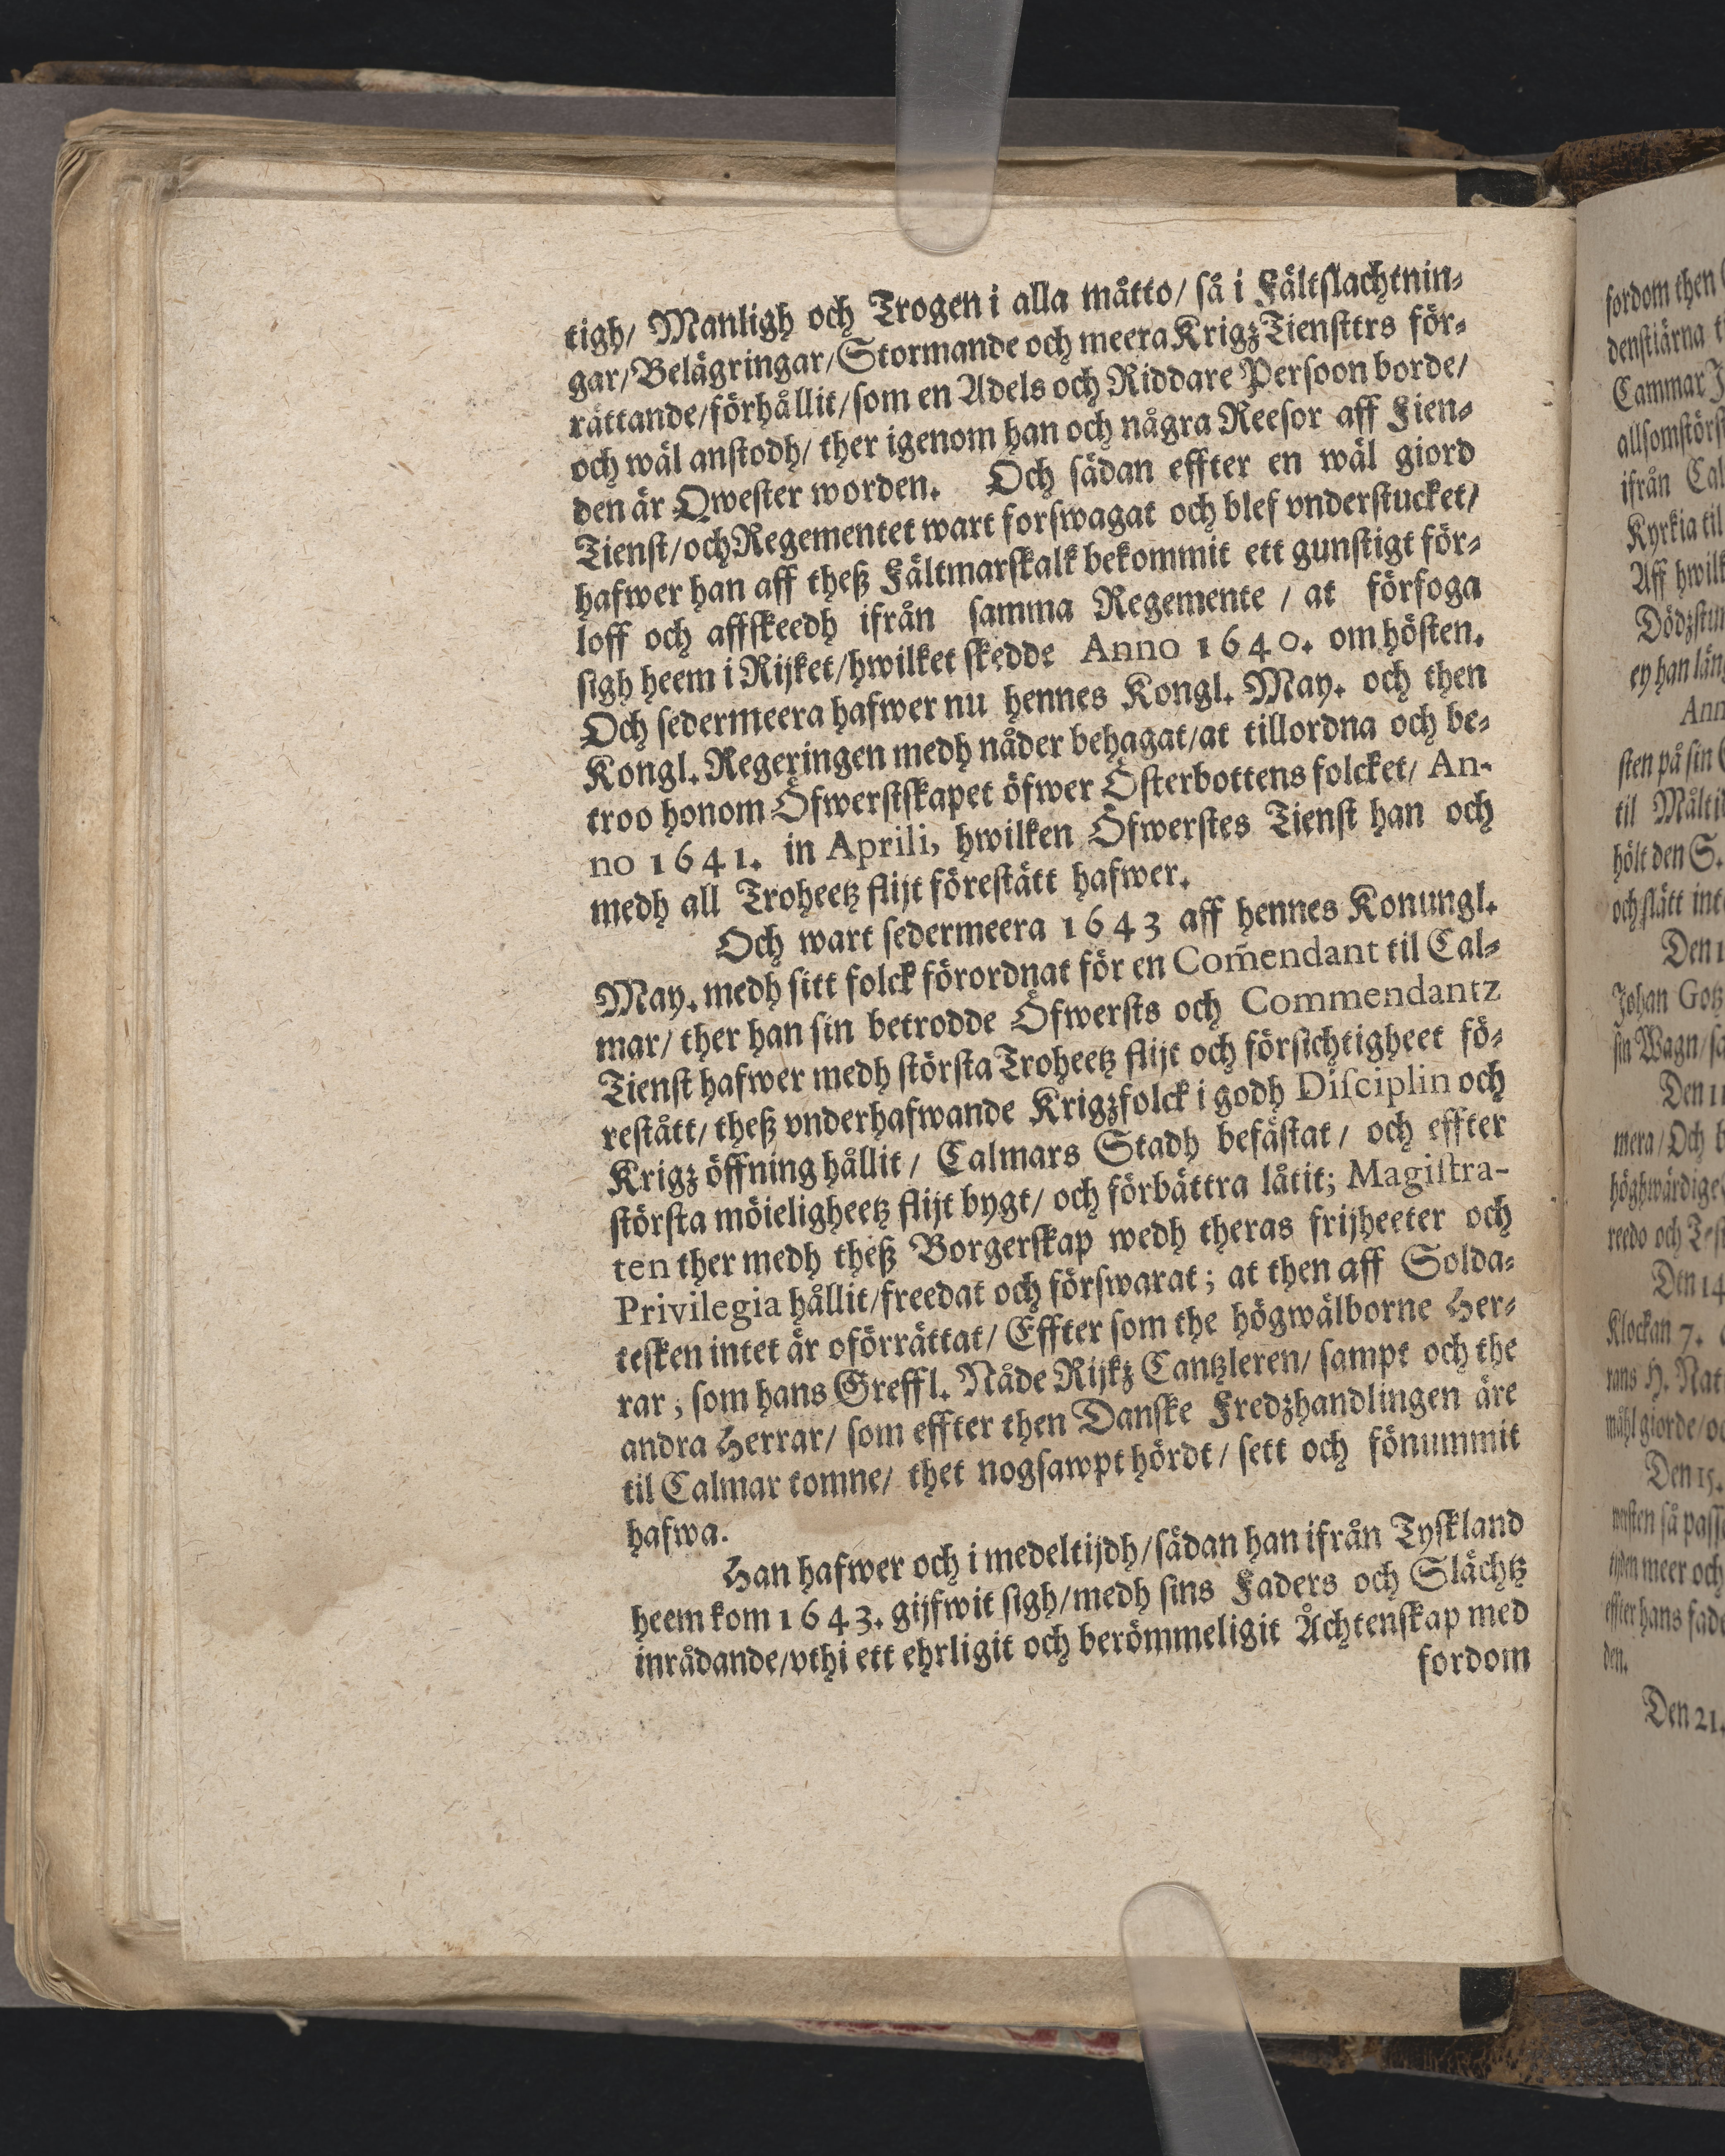 tigh/ Manligh och Trogen i alla måtto/ så i Fältslachtnin⸗
gar/Belägringar/Stormande och meera KrigzTiensttrs för⸗
rättande/förhållit/som en Adels och Riddare Persoon borde/
och wäl anstodh/ ther igenom han och några Reesor aff Fien⸗
den är Qwester worden. Och sädan effter en wäl giord
Tienst/och Regementet wart forswagat och blef vnderstucket/
hafwer han aff theß Fältmarskalk bekommit ett gunstigt för⸗
loff och affskeedh ifrån samma Regemente / at förfoga
sigh heem i Rijket/hwilket skedde Anno 1640. om hösten.
Och sedermeera hafwer nu hennes Kongl. May. och then
Kongl. Regeringen medh nåder behagat/at tillordna och be⸗
troo honom Öfwerstskapet öfwer Österbottens folcket/ An-
no 1641. in Aprili, hwilken Öfwerstes Tienst han och
medh all Troheetz flijt förestätt hafwer.
Och wart sedermeera 1643 aff hennes Konungl.
May. medh sitt folck förordnat för en Com̃endant til Cal⸗
mar/ ther han sin betrodde Öfwersts och Commendantz
Tienst hafwer medh största Troheetz flijt och försichtigheet fö⸗
restått/ theß vnderhafwande Krigzfolck i godh Disciplin och
Krigz öffning hållit / Calmars Stadh befästat / och effter
största möieligheetz flijt bygt/ och förbättra låtit; Magistra-
ten ther medh theß Borgerskap wedh theras frijheeter och
Privilegia hållit/freedat och förswarat; at then aff Solda⸗
tesken intet är oförrättat/ Effter som the högwälborne Her⸗
rar ; som hans Greffl. Nåde Rijkz Cantzleren/ sampt och the
andra Herrar/ som effter then Danske Fredzhandlingen äre
til Calmar tomne/ thet nogsawpt hördt / sett och fönummit
hafwa.
Han hafwer och i medeltijdh/sädan han ifrån Tyskland
heem kom 1643. gijfwit sigh/medh sins Faders och Slächtz
inrådande/vthi ett ehrligit och berömmeligit Ächtenskap med
fordom
fordom then
denstiärna
Cammar
allsomstörst
ifrån Cal
Kyrkia til
Aff hwilk
Dödzstun
ey han läng
Ann
sten på sin
til Måltid
hölt den S.
och slätt int
Den 1
Johan Gotz
sin Wagn/sa
Den 11
mera/Och b
höghwärdige
reedo och Test
Den 14
Klockan 7.
rans H. Nat
måhl giorde/oc
Den 15.
nasten så passe
meer och
effter hans fade
den.
Den 21.